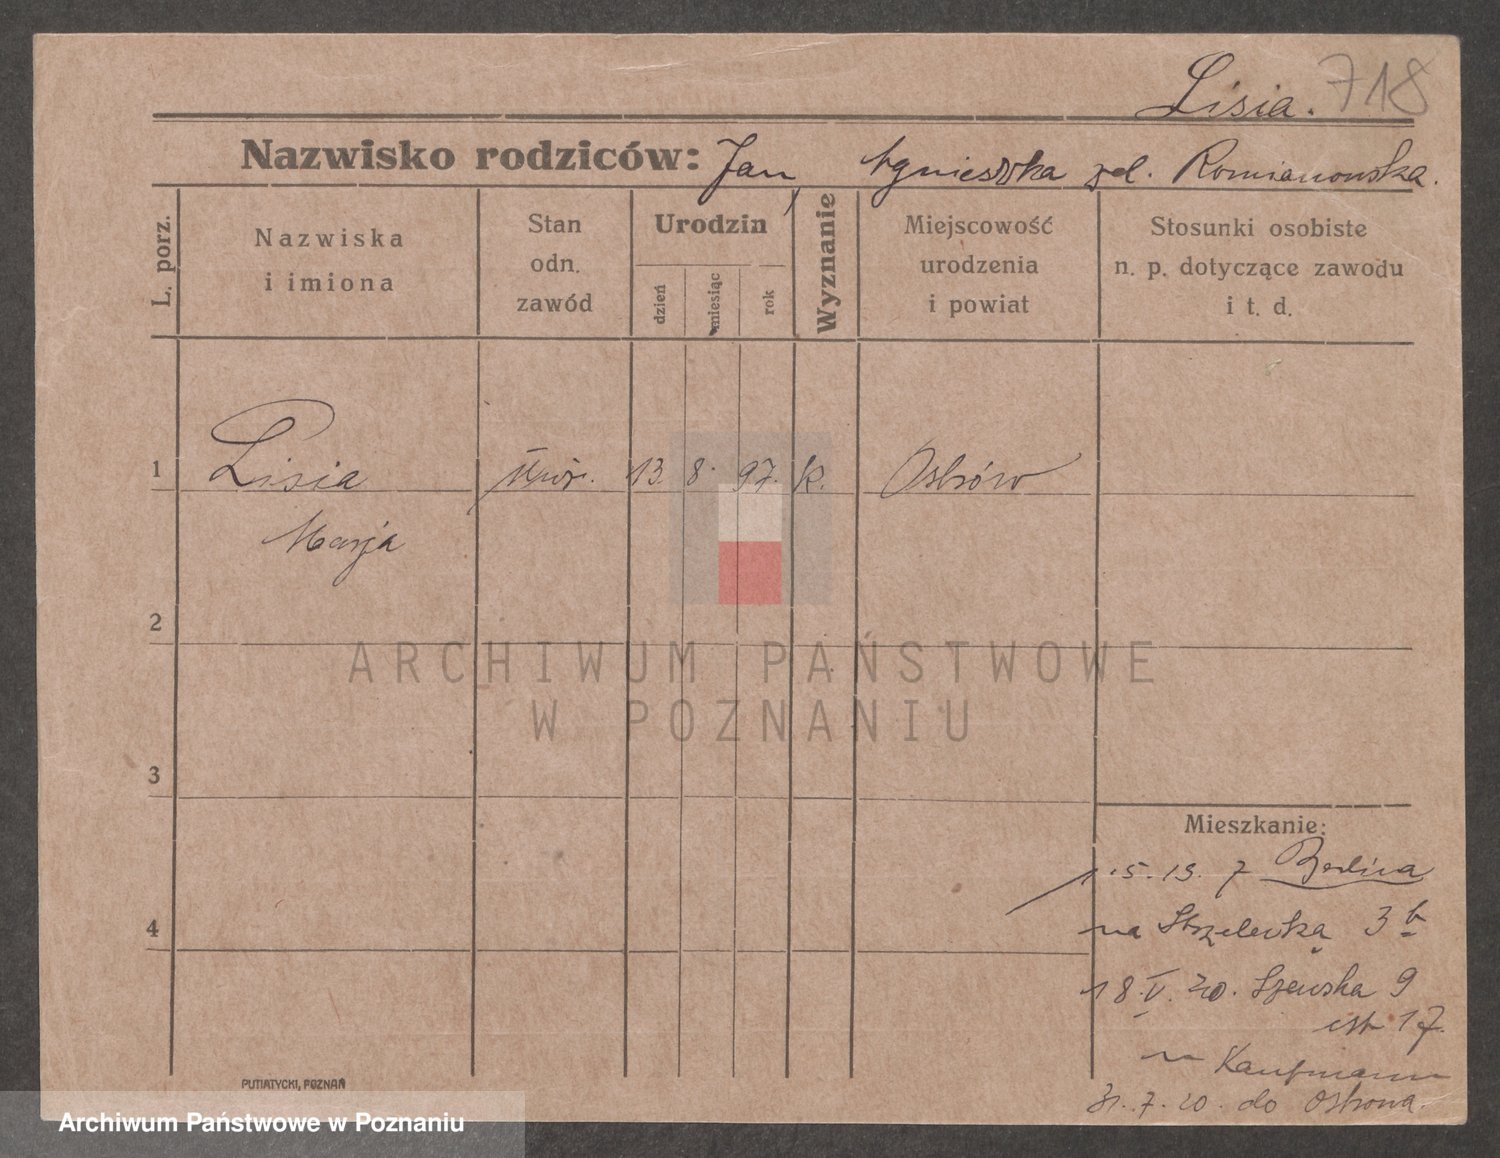 Lisia. 718
Nazwisko rodziców: Jan, Agnieszka zd. Romianowska.
L. porz.
Nazwiska
i imiona
Stan
odn.
zawód
Urodzin
dzień
miesiąc
rok
Wyznanie
Miejscowość
urodzenia
i powiat
Stosunki osobiste
n. p. dotyczące zawodu
i t. d.
1 Lisia 13. 8. 97. k. Ostrów
Marja
2
3
4
ARCHIWUM PAŃSTWOWE
W POZNANIU
Mieszkanie:
1.5.19. z Berlina
na Strzelecka 3 b
18.V.20. Szewska 9
17.
Kaufmann
31.7.20. do Ostrowa.
PUTIATYCKI, POZNAŃ
Archiwum Państwowe w Poznaniu